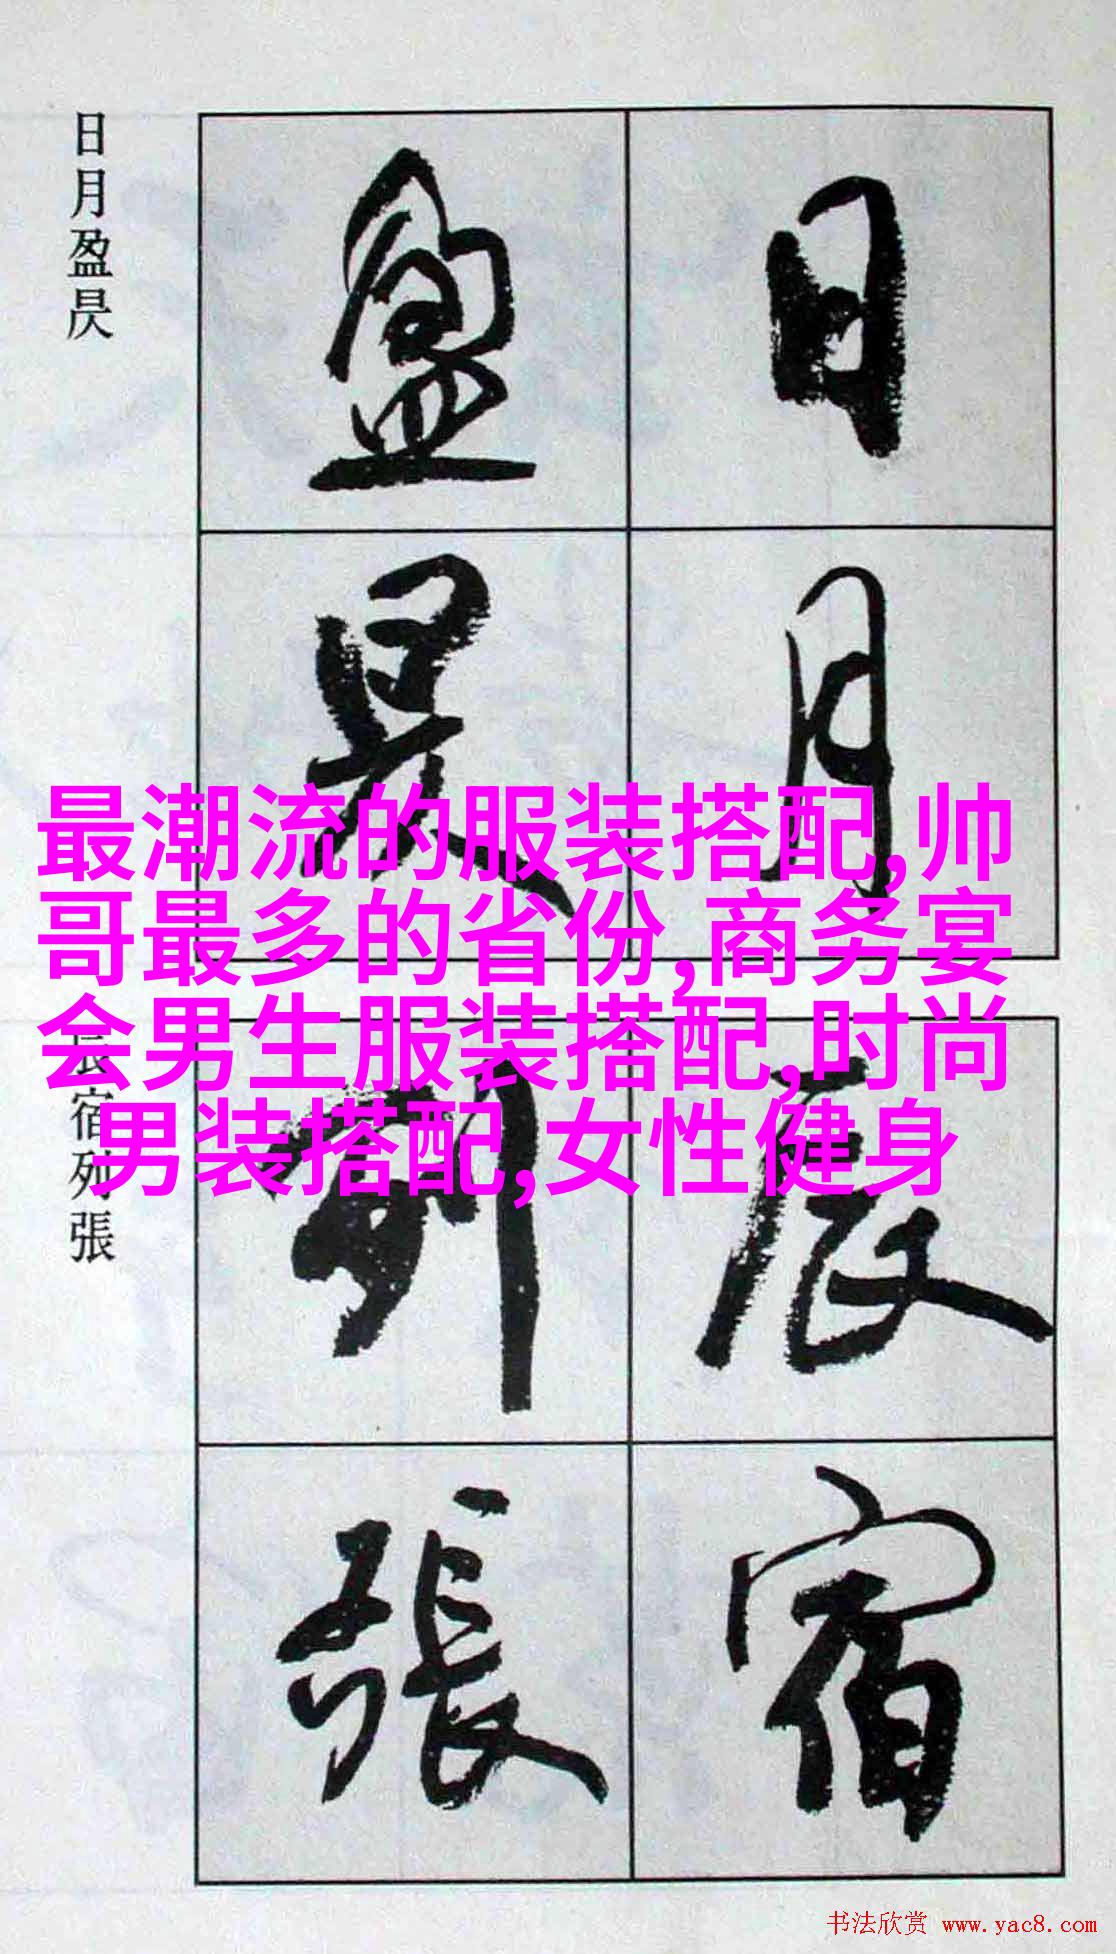 日月盈昃
日
月
盈
昃
最潮流的服装搭配,帅
哥最多的省份,商务宴
会男生服装搭配,时尚
男装搭配,女性健身
辰宿列張
辰
宿
列
張
书法欣赏 www.yac8.com